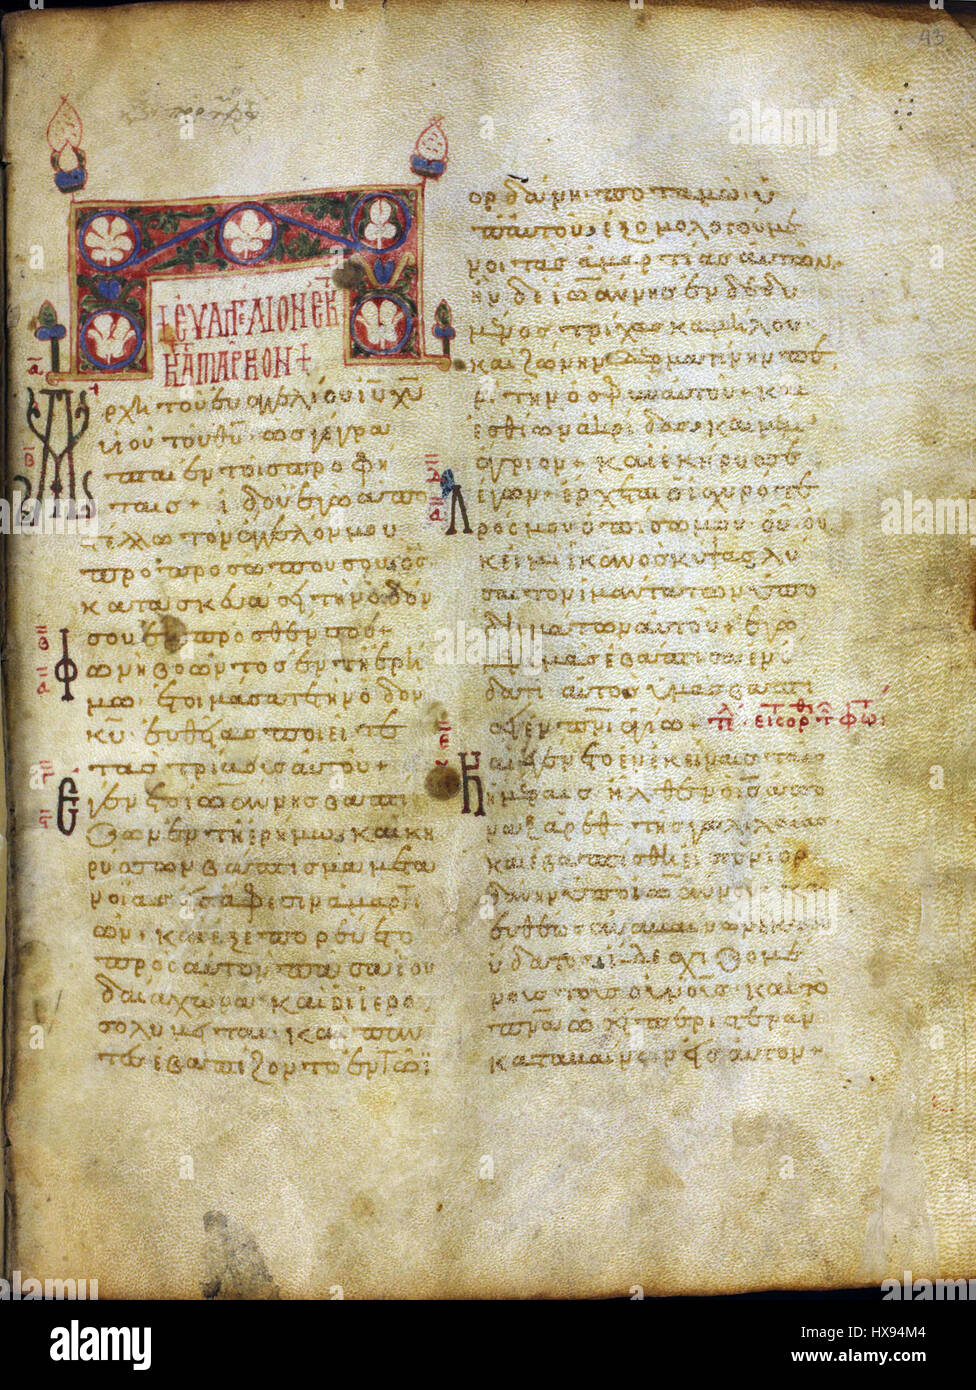 43
+ ΕΥΑΓΓΕΛΙΟΝ ΕΚ
ΚΑΤΑ ΜΑΡΚΟΝ +
Ἀρχὴ τοῦ εὐαγγελίου ἰῦ χῦ
υἱοῦ τοῦ θῦ· ὡς γέγρα
πται ἐν τοῖς προφή
ταις + ἰδοὺ ἐγὼ ἀπο
στέλλω τὸν ἄγγελόν μου
πρὸ προσώπου σου ὃς
κατασκευάσει τὴν ὁδόν
σου ἔμπροσθέν σου +
Φωνὴ βοῶντος ἐν τῇ ἐρή
μω ἑτοιμάσατε τὴν ὁδὸν
κῦ εὐθείας ποιεῖτε
τὰς τρίβους αὐτοῦ +
Ἐγένετο ἰωάννης βαπτί
ζων ἐν τῇ ἐρήμω καὶ κη
ρύσσων βάπτισμα μετα
νοίας εἰς ἄφεσιν ἁμαρτι
ῶν· καὶ ἐξεπορεύετο
πρὸς αὐτὸν πᾶσα ἡ ἰου
δαία χώρα καὶ οἱ ἱερο
σολυμῖται· καὶ πάν
τες ἐβαπτίζοντο ἐν τῷ ἰ
ορδάνη ποταμῷ ὑ
π' αὐτοῦ ἐξομολογούμε
νοι τὰς ἁμαρτίας αὐτῶν·
ἦν δὲ ἰωάννης ἐνδεδυ
μένος τρίχας καμήλου·
καὶ ζώνην δερματίνην πε
ρὶ τὴν ὀσφὺν αὐτοῦ· καὶ
ἐσθίων ἀκρίδας καὶ μέλι
ἄγριον + καὶ ἐκήρυσσε
λέγων + ἔρχεται ὁ ἰσχυρότε
ρός μου ὀπίσω μου· οὗ οὐ
κ εἰμὶ ἱκανὸς κύψας λῦ
σαι τὸν ἱμάντα τῶν ὑπο
δημάτων αὐτοῦ + ἐγὼ
μὲν ὑμᾶς ἐβάπτισα ἐν ὕ
δατι αὐτὸς ὑμᾶς βαπτί
σει ἐν πνι ἁγίω +
Καὶ ἐγένετο ἐν ἐκείναις ταῖς
ἡμέραις ἦλθεν ὁ ἰς ἀπὸ
ναζαρὲθ τῆς γαλιλαίας
καὶ ἐβαπτίσθη εἰς τὸν ἰορ
δάνην ὑπὸ ἰωάννου· καὶ
εὐθέως ἀναβαίνων ἐκ τοῦ
ὕδατος εἶδε σχιζομέ
νους τοὺς οὐνοὺς· καὶ τὸ
πνα ὡσεὶ περιστερὰν
καταβαῖνον ἐπ' αὐτόν +
alamy stock photo
HX94M4
www.alamy.com